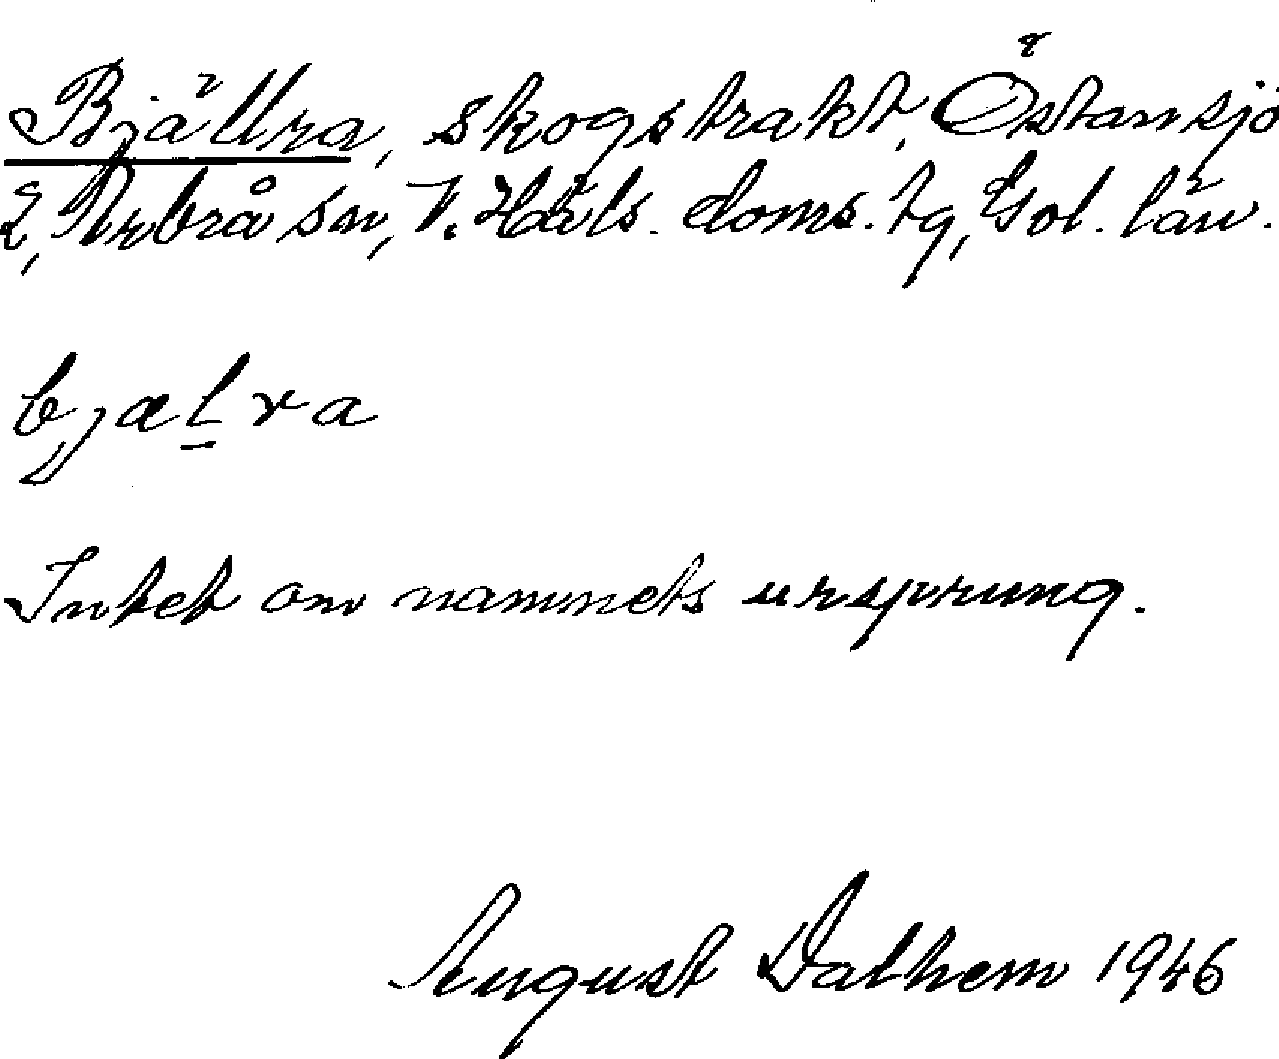 Bjällra, skogstrakt, Östansjö
2, Arbrå sn, V. Häls. doms. tg, Gol. län.
bjælra
Intet om namnets ursprung.
August Dalhem 1946